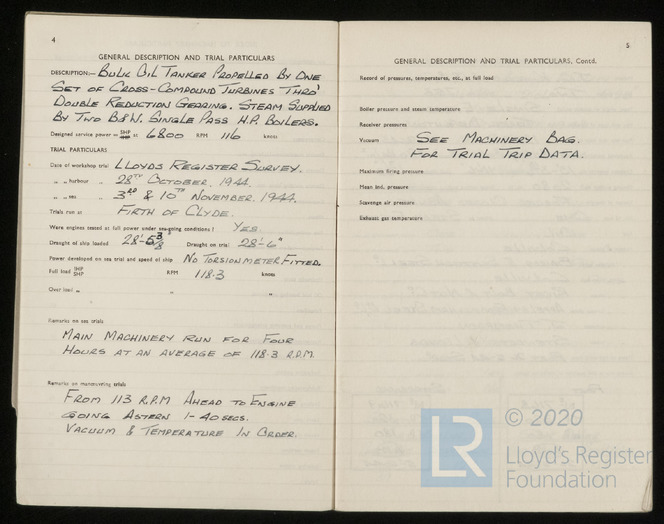 4
GENERAL DESCRIPTION AND TRIAL PARTICULARS
DESCRIPTION:- BULK OIL TANKER PROPELLED BY ONE
SET OF CROSS-COMPOUND TURBINES THRO'
DOUBLE REDUCTION GEARING. STEAM SUPPLIED
BY TWO B&W. SINGLE PASS H.P. BOILERS.
Designed service power = SHP at 6800 RPM 116 knots
TRIAL PARTICULARS
Date of workshop trial LLOYDS REGISTER SURVEY.
" " harbour " 28TH OCTOBER. 1944.
" " sea " 3RD & 10TH NOVEMBER. 1944.
Trials run at FIRTH OF CLYDE.
Were engines tested at full power under sea-going conditions? YES
Draught of ship loaded 28'- 3/8" Draught on trial 28'-6"
Power developed on sea trial and speed of ship NO TORSIONMETER FITTED.
Full load IHP SHP RPM 118.3 knots
Over load " " "
Remarks on sea trials
MAIN MACHINERY RUN FOR FOUR
HOURS AT AN AVERAGE OF 118.3 R.P.M.
Remarks on manœuvring trials
FROM 113 R.P.M AHEAD TO ENGINE
GOING ASTERN 1-40 SECS.
VACUUM & TEMPERATURE IN ORDER.
5
GENERAL DESCRIPTION AND TRIAL PARTICULARS, Contd.
Record of pressures, temperatures, etc., at full load
Boiler pressure and steam temperature
Receiver pressures
Vacuum SEE MACHINERY BAG.
FOR TRIAL TRIP DATA.
Maximum firing pressure
Mean ind. pressure
Scavenge air pressure
Exhaust gas temperature
LR
© 2020
Lloyd's Register
Foundation